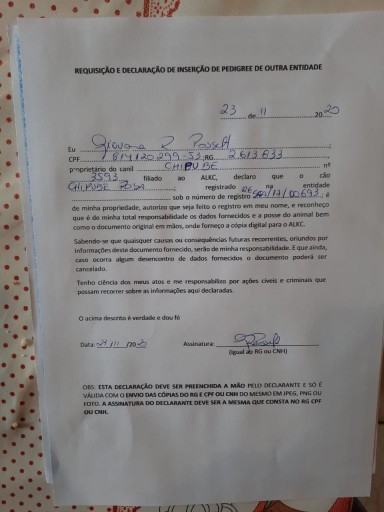 REQUISIÇÃO E DECLARAÇÃO DE INSERÇÃO DE PEDIGREE DE OUTRA ENTIDADE
23 de 11 2020
Eu Giovana R Posselt;
CPF 814120299-53;RG 2.613.633,
proprietário do canil CHIPUBE nº
3593, filiado ao ALKC, declaro que o cão
CHIPUBE ROSA; registrado na entidade
sob o número de registro é
de minha propriedade, autorizo que seja feito o registro em meu nome, e reconheço
que é do minha total responsabilidade os dados fornecidos e a posse do animal bem
como o documento original em mãos, onde forneço a cópia digital para o ALKC.
Sabendo-se que quaisquer causas ou consequências futuras recorrentes, oriundos por
informações deste documento fornecido, serão de minha responsabilidade. E que ainda,
caso ocorra algum desencontro de dados fornecidos o documento poderá ser
cancelado.
Tenho ciência dos meus atos e me responsabilizo por ações cíveis e criminais que
possam recorrer sobre as informações aqui declaradas.
O acima descrito é verdade e dou fé
Data: /11/2020 Assinatura: Posselt
(Igual ao RG ou CNH)
OBS: ESTA DECLARAÇÃO DEVE SER PREENCHIDA A MÃO PELO DECLARANTE E SÓ É
VÁLIDA COM O ENVIO DAS CÓPIAS DO RG E CPF OU CNH DO MESMO EM JPEG, PNG OU
FOTO. A ASSINATURA DO DECLARANTE DEVE SER A MESMA QUE CONSTA NO RG CPF
OU CNH.